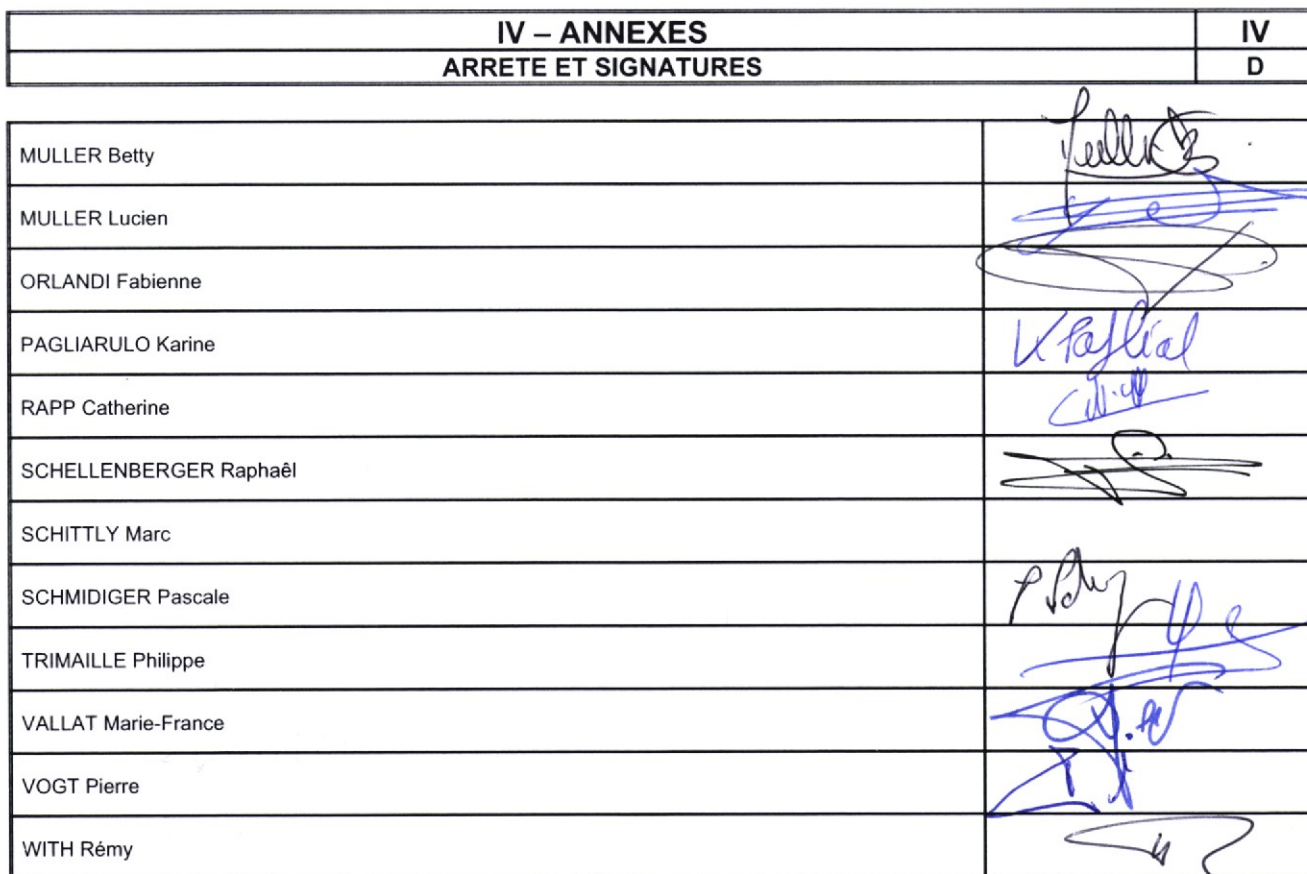 IV – ANNEXES IV
ARRETE ET SIGNATURES D
MULLER Betty
MULLER Lucien
ORLANDI Fabienne
PAGLIARULO Karine
RAPP Catherine
SCHELLENBERGER Raphaêl
SCHITTLY Marc
SCHMIDIGER Pascale
TRIMAILLE Philippe
VALLAT Marie-France
VOGT Pierre
WITH Rémy